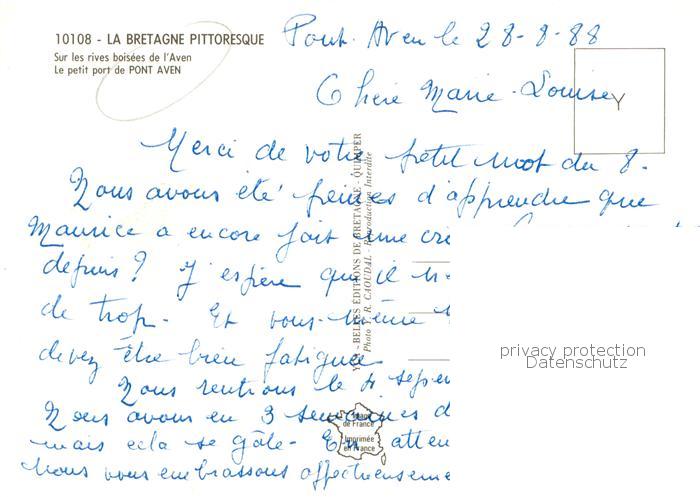 10108 - LA BRETAGNE PITTORESQUE
Sur les rives boisées de l'Aven
Le petit port de PONT AVEN
Pont-Aven le 28-8-88
Chère Marie-Louise
Y
Merci de votre petit mot du 8.
Nous avons été peinés d'apprendre que
Maurice a encore fait une cri
depuis? J'espère qu'il n'
de trop. Et vous-même
devez être bien fatiguée
Nous rentrons le 4 septem
Nous avons eu 3 semaines d
mais cela se gâte. En atten
Nous vous embrassons affectueuseme
BELLES ÉDITIONS DE BRETAGNE - QUIMPER
Photo Y. R. CAOUDAL - Reproduction Interdite
de France
Imprimée
en France
privacy protection
Datenschutz